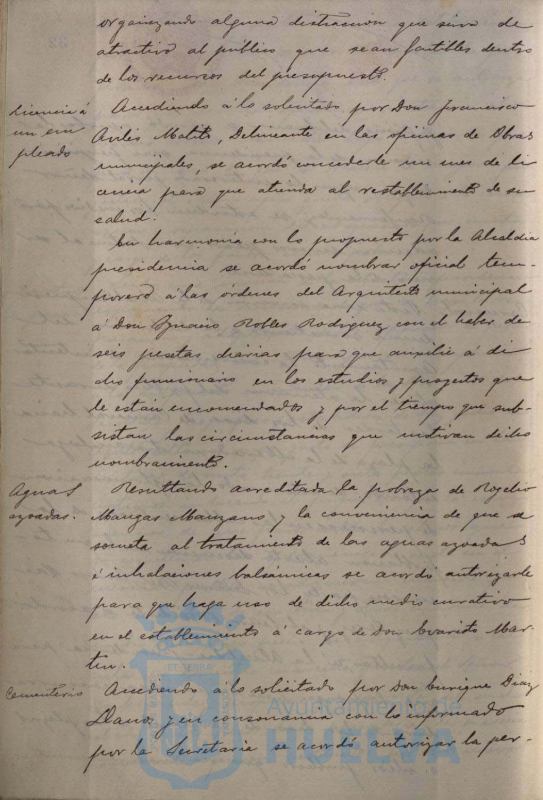 organizando alguna distracción que sirva de
atractivo al público que sean factibles dentro
de los recursos del presupuesto.
Licencia á
un em
pleado
Accediendo á lo solicitado por Don Francisco
Aviles Matito, Delineante en las oficinas de Obras
municipales, se acordó concederle un mes de li
cencia para que atienda al restablecimiento de su
salud.
En harmonía con lo propuesto por la Alcaldia
presidencia se acordó nombrar oficial tem-
porero á las órdenes del Arquitecto municipal
á Don Ignacio Robles Rodriguez con el haber de
seis pesetas diarias para que auxilie á di
cho funcionario en los estudios y proyectos que
le estan encomendados y por el tiempo que sub-
sistan las circunstancias que motivan dicho
nombramiento.
Aguas
azoadas.
Resultando acreditada la pobreza de Rogelio
Mangas Manzano y la conveniencia de que se
someta al tratamiento de las aguas azoadas
é inhalaciones balsámicas se acordó autorizarle
para que haga uso de dicho medio curativo
en el establecimiento á cargo de Don Evaristo Mar-
tin.
Cementerio
Accediendo á lo solicitado por Don Enrique Diaz
Llanos y en consonancia con lo informado
por la Secretaria se acordó autorizar la per-
ET TERRA
Ayuntamiento de
HUELVA